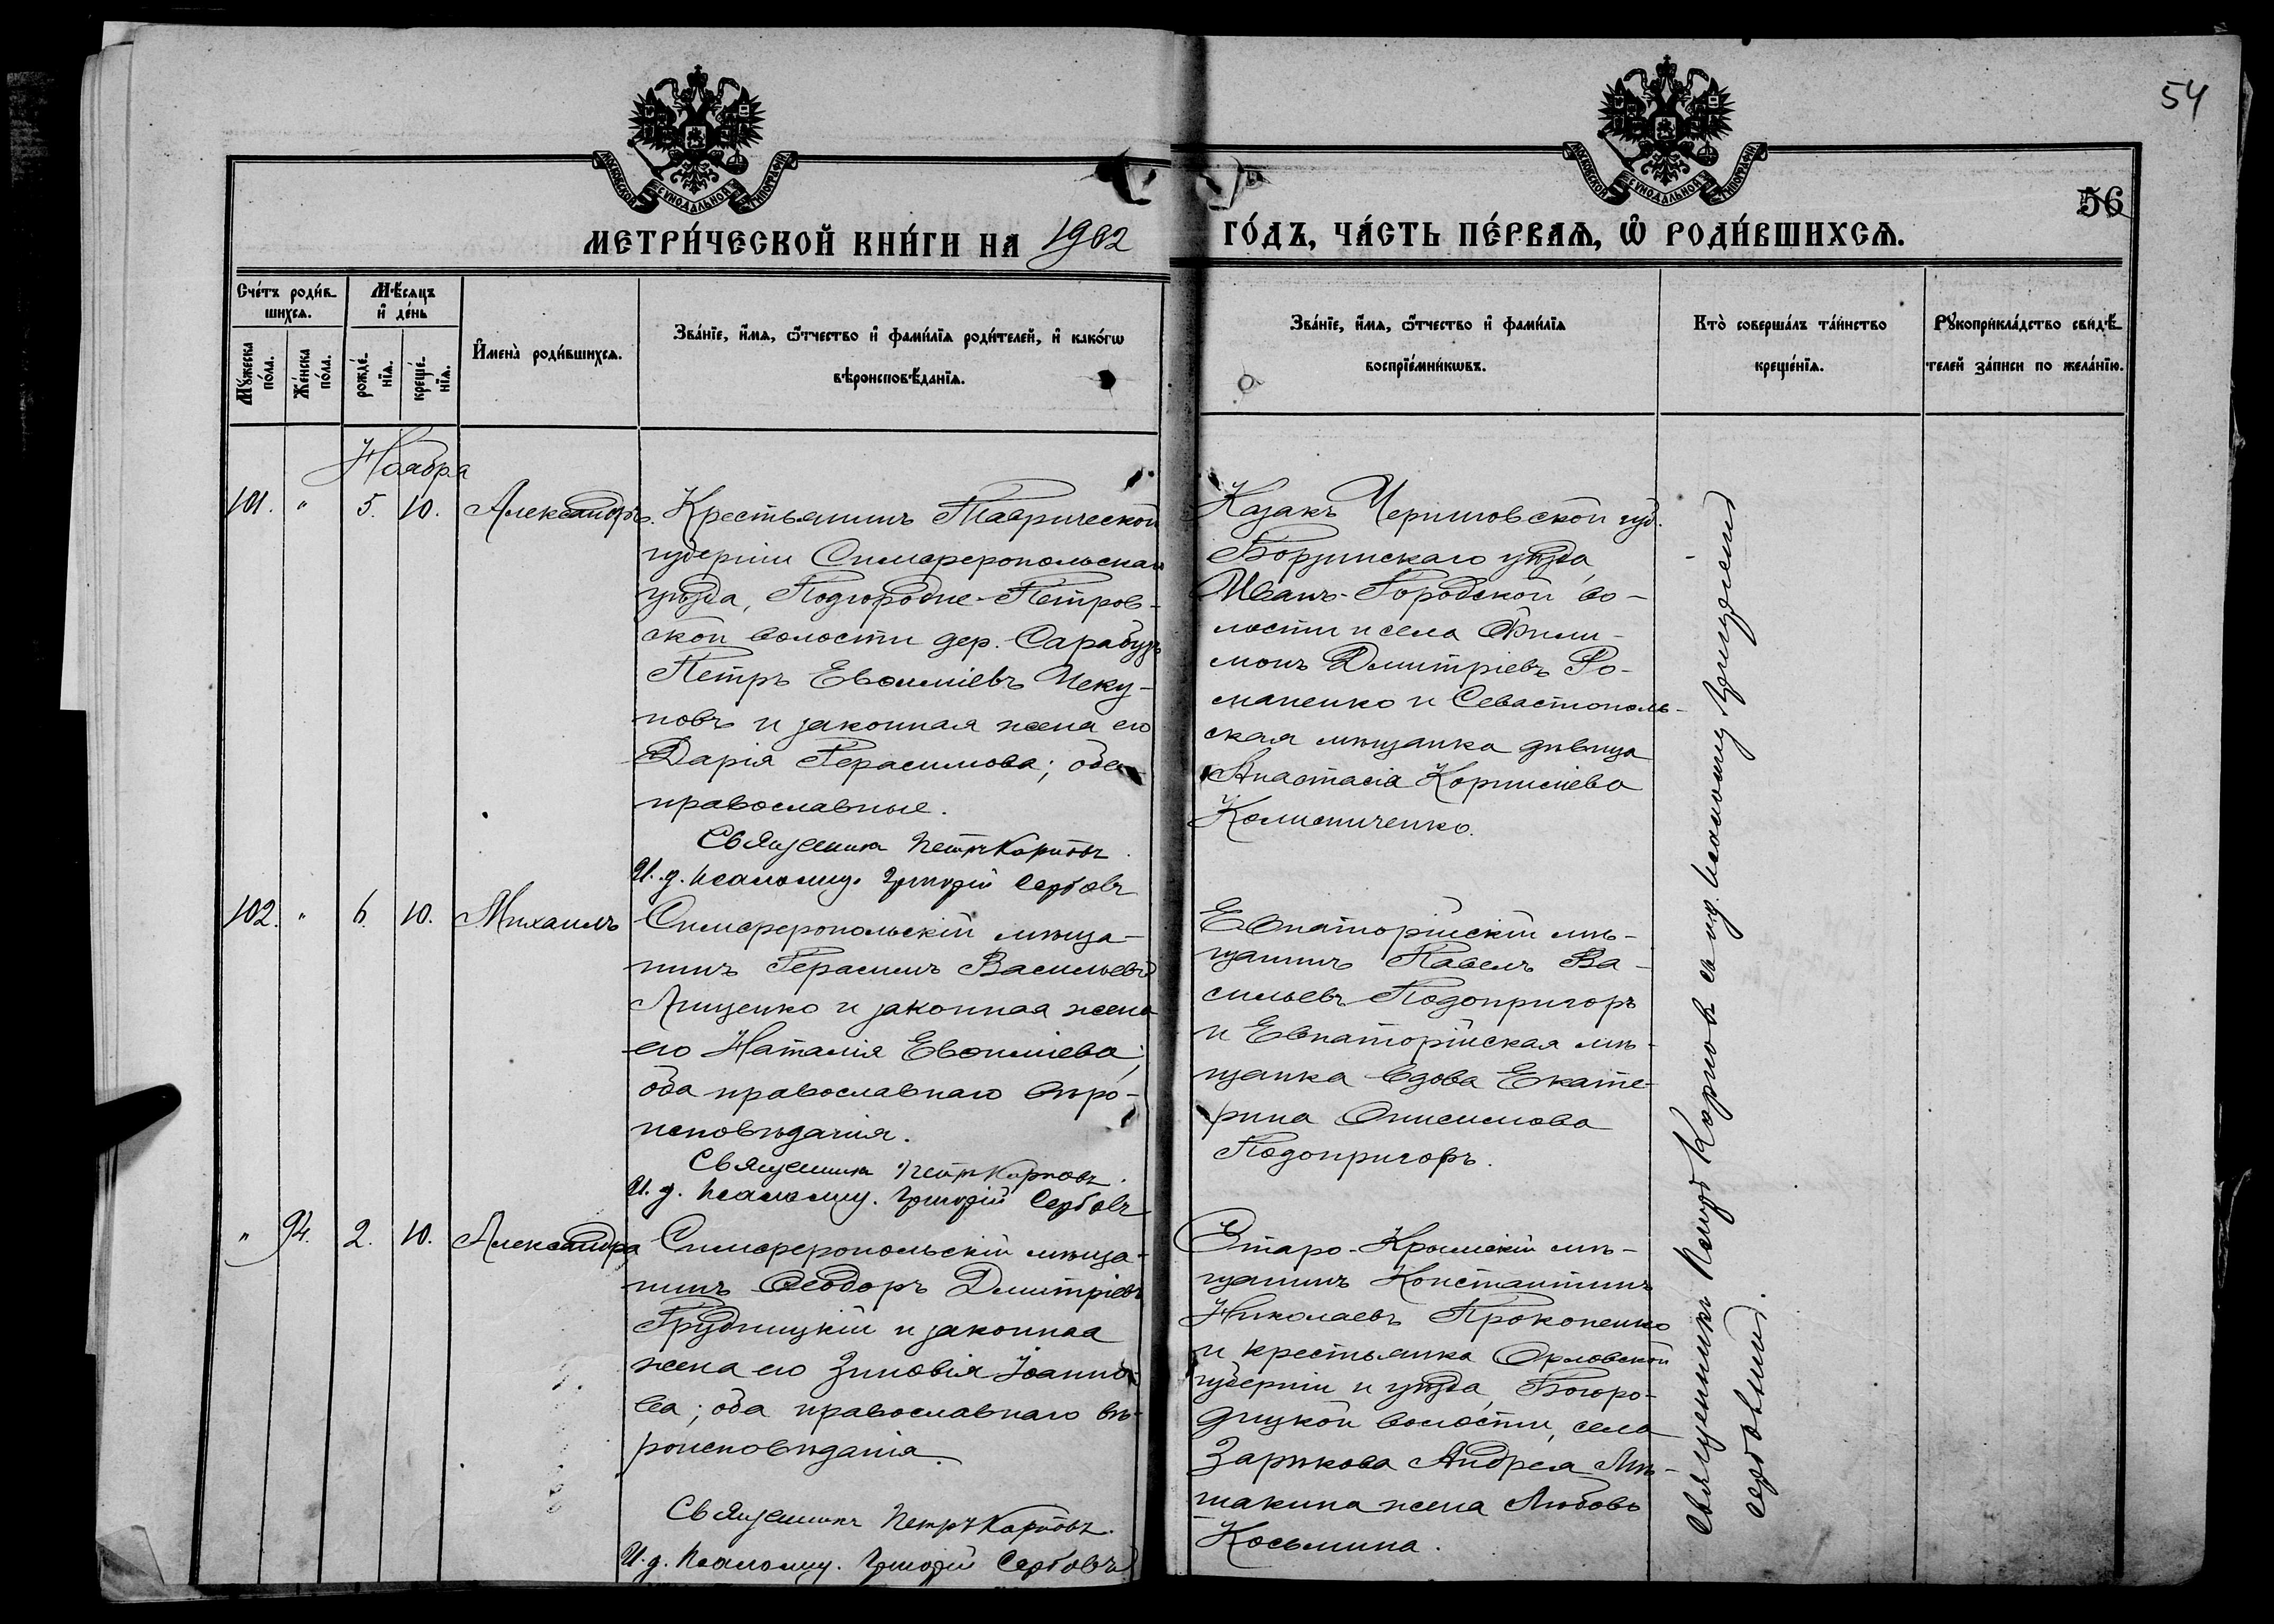 54
56
МОСКОВСКОЙ СѴНОДАЛЬНОЙ ТИПОГРАФІИ
МОСКОВСКОЙ СѴНОДАЛЬНОЙ ТИПОГРАФІИ
МЕТРИ́ЧЕСКОЙ КНИ́ГИ НА 1902
ГО́ДЪ, ЧА́СТЬ ПЕ́РВАѦ, Ѽ РОДИ́ВШИХСѦ.
Сче́тъ роди́в-
шихсѧ.
Мꙋжеска
по́ла.
Же́нска
по́ла.
Мѣ́сяцъ
и҆ де́нь
рожде́-
нїѧ.
креще́-
нїѧ.
И҆мена̀ роди́вшихсѧ.
Зва́нїе, и҆́мѧ, ѻ҆́тчество и҆ фамі́лїѧ роди́телей, и҆ како́гѡ
вѣроисповѣ́данїѧ.
Зва́нїе, и҆́мѧ, ѻ҆́тчество и҆ фамі́лїѧ
воспрїе́мникѡвъ.
Кто̀ соверша́лъ та́инство
креще́нїѧ.
Рꙋкоприкла́дство свидѣ́-
телей за́писи по жела́нїю.
Ноября
101. " 5. 10. Александръ.
Крестьянинъ Таврической
губерніи Симферопольскаго
уѣзда, Подгородне-Петров-
ской волости дер. Сарабузъ
Петръ Евѳиміевъ Чеку-
новъ и законная жена его
Дарія Герасимова; оба
православные.
Священникъ Петръ Карповъ.
И. д. псаломщ. Григорій Сербовъ
Казакъ Черниговской губ.
Борзинскаго уѣзда,
Иванъ-Городской во-
лости и села Фили-
монъ Дмитріевъ Ро-
маненко и Севастополь-
ская мѣщанка дѣвица
Анастасія Корниліева
Колисниченко.
102. " 6. 10. Михаилъ
Симферопольскій мѣща-
нинъ Герасимъ Васильевъ
Лищенко и законная жена
его Наталія Евѳиміева;
оба православнаго вѣро-
исповѣданія.
Священникъ Петръ Карповъ.
И. д. псаломщ. Григорій Сербовъ
Евпаторійскій мѣ-
щанинъ Павелъ Ва-
сильевъ Подопригоръ
и Евпаторійская мѣ-
щанка вдова Екате-
рина Онисимова
Подопригоръ.
" 94. 2. 10. Александра
Симферопольскій мѣща-
нинъ Ѳеодоръ Дмитріевъ
Грудницкій и законная
жена его Зиновія Іоанно-
ва; оба православнаго вѣ-
роисповѣданія.
Священникъ Петръ Карповъ.
И. д. псаломщ. Григорій Сербовъ
Старо-Крымскій мѣ-
щанинъ Константинъ
Николаевъ Прокопенко
и крестьянка Орловской
губерніи и уѣзда, Богоро-
дицкой волости, села
Зарыкова Андрея Мѣ-
шакина жена Любовь
Косьмина.
Священникъ Петръ Карповъ съ и.д. псаломщ. Григоріемъ
Сербовымъ.